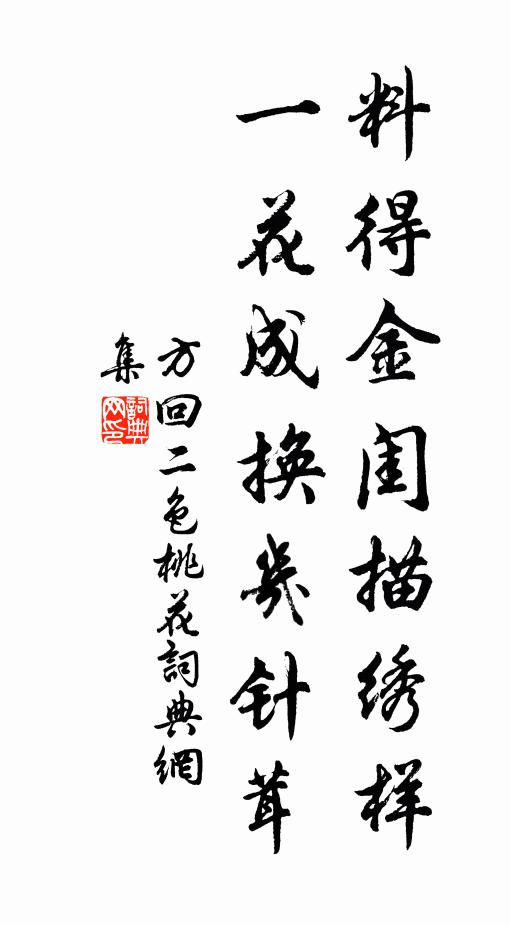 料得金闺描绣样
一花成换几针茸
方回二色桃花詞典網
集
詞典
网印